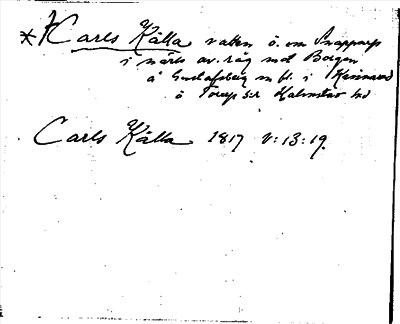 * Carls Källa vatten ö. om Snapparp
i närh. av. råg mot Borgen
å Gustafsberg m bl. i
ö Torup sn Halmstad hd
Carls Källa 1817 V:13:19.